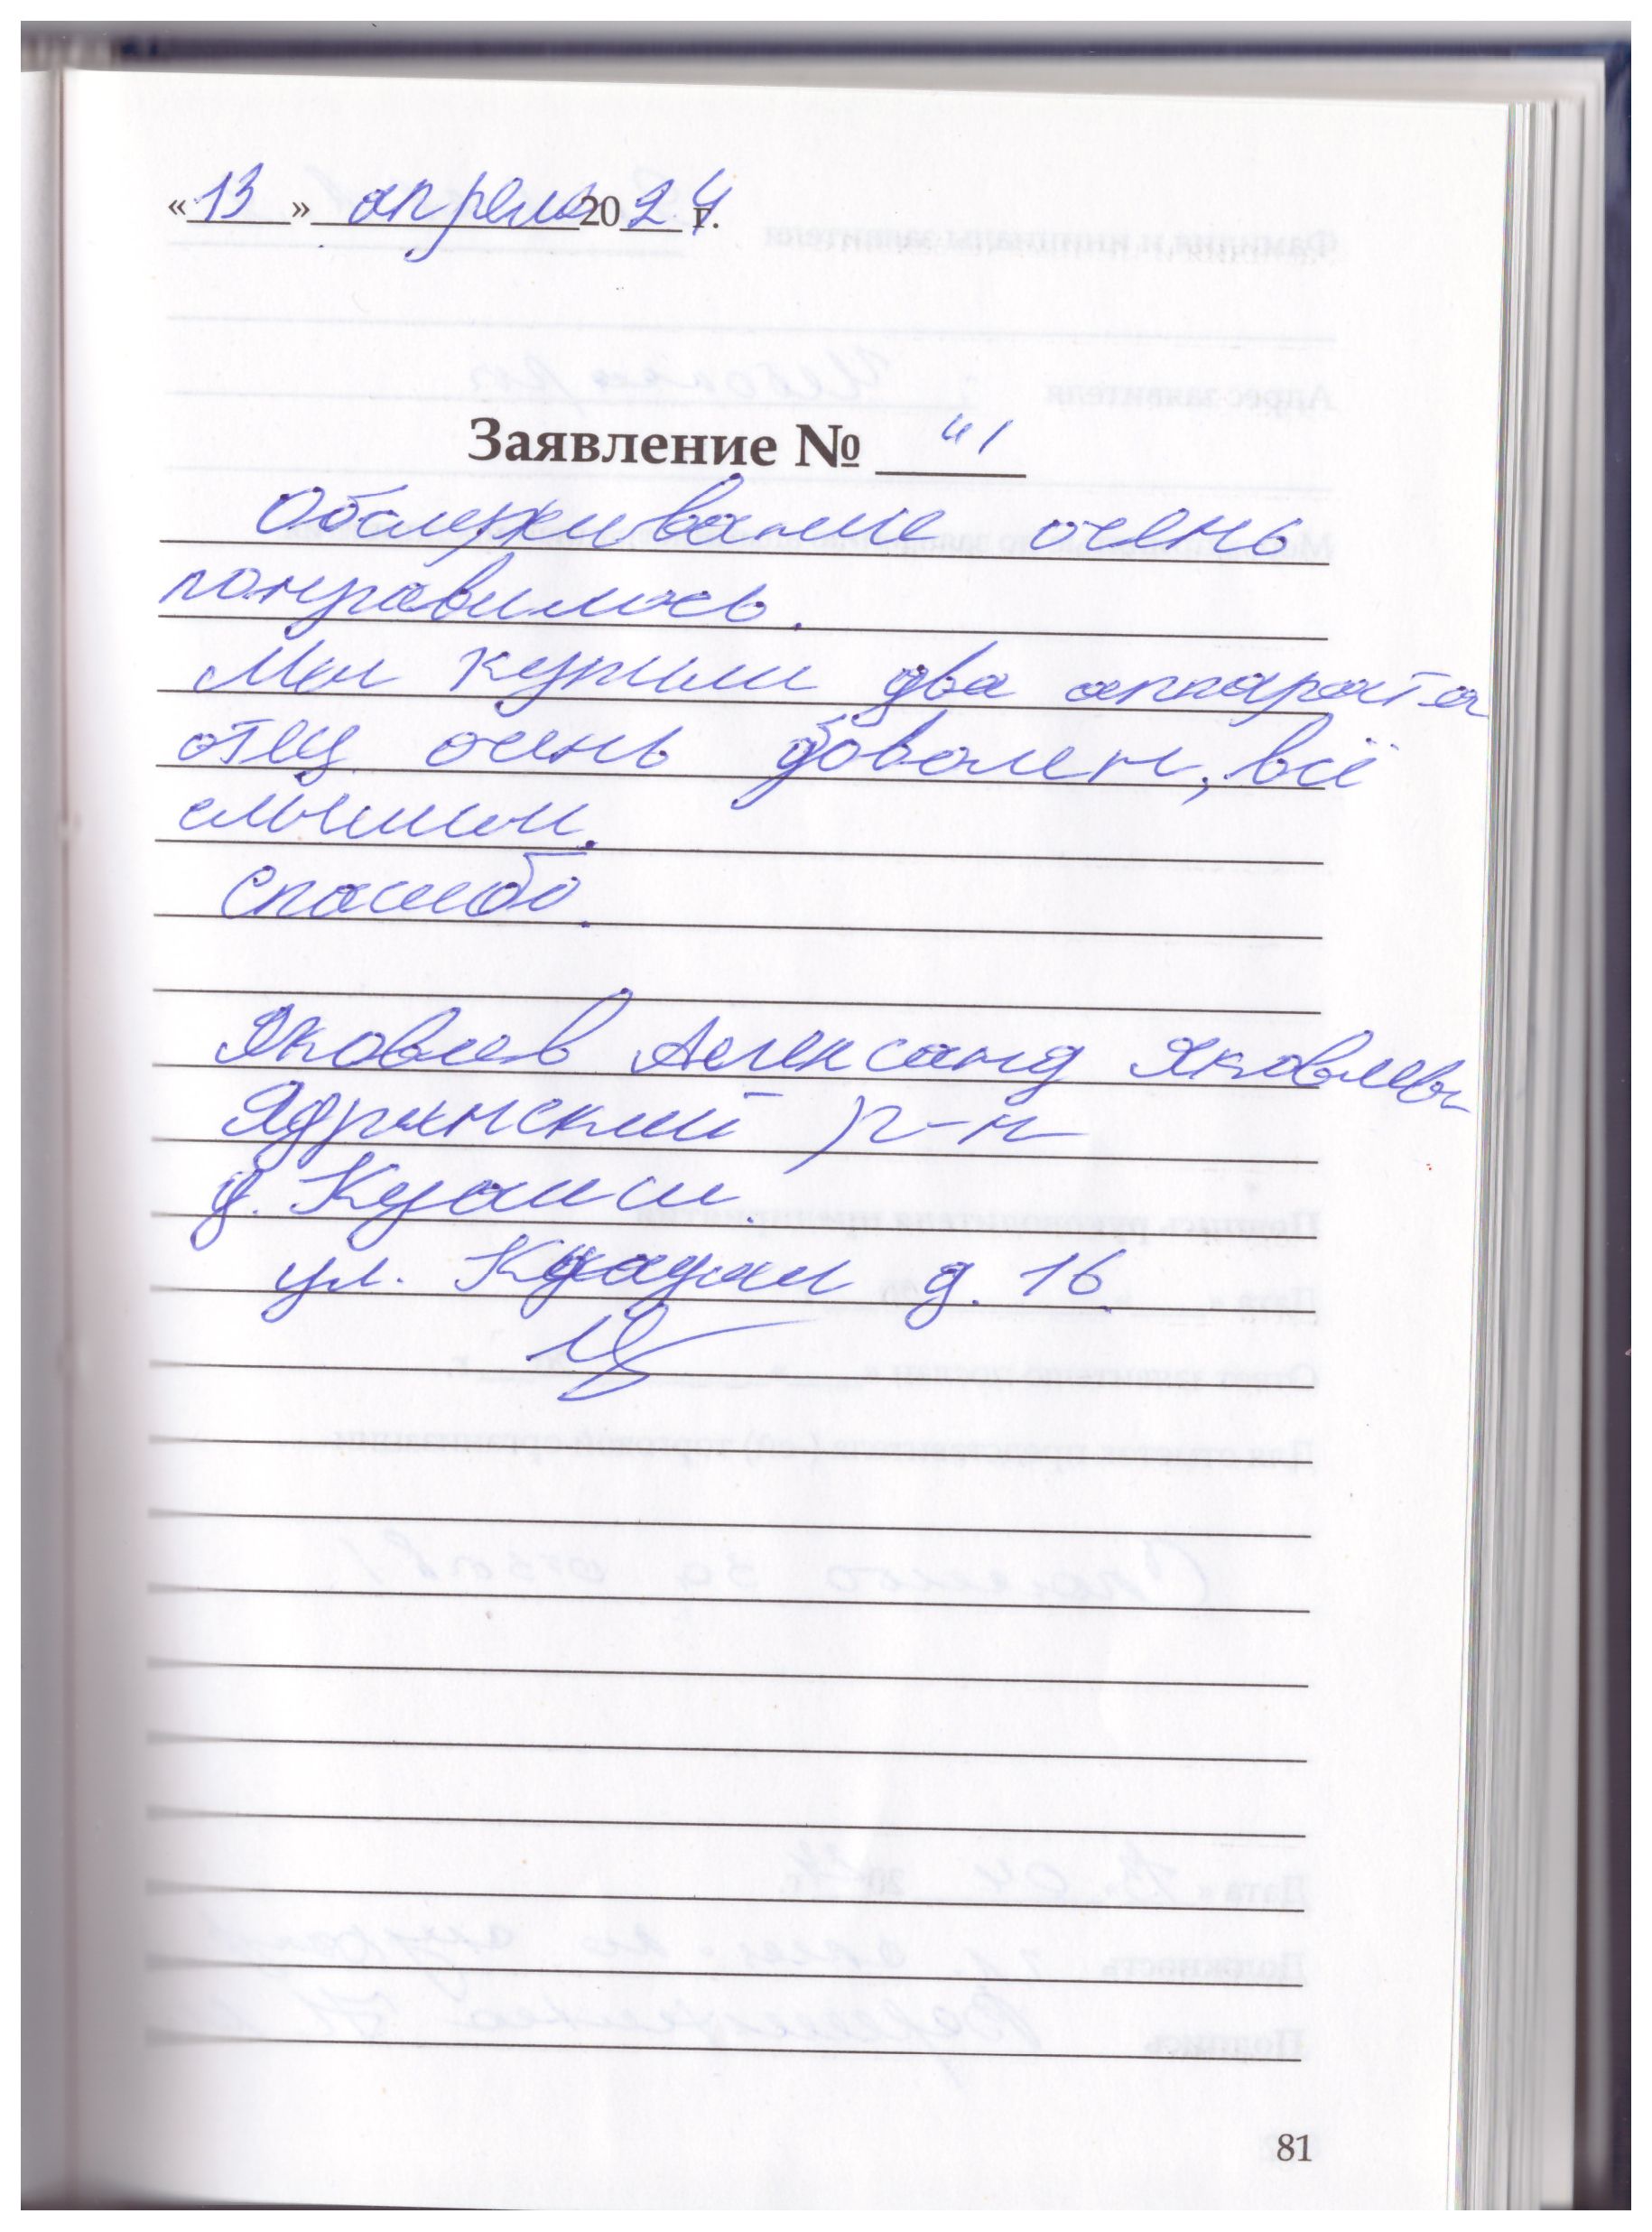 «13» апреля 2024 г.
Заявление № 41
Обслуживание очень
понравилось.
Мы купили два аппарата
отец очень доволен, всё
слышит.
Спасибо.
Яковлев Александ Яковлев
Ядринский р-н
д. Кудаши.
ул. д. 16.
81